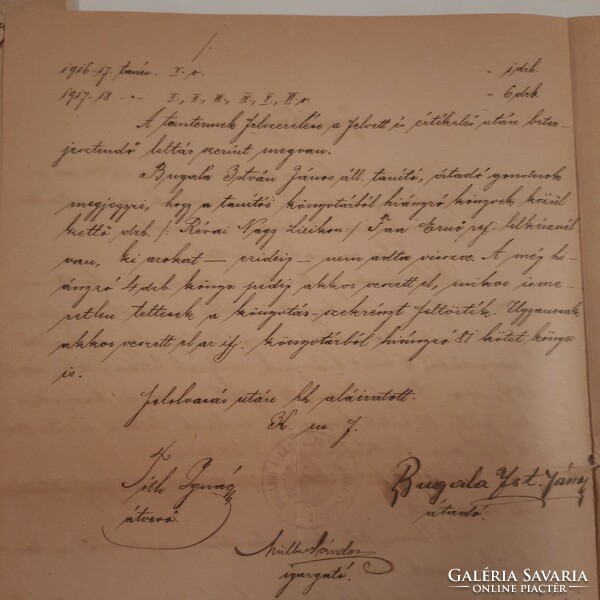 1916-17. tanév. I. o. - 1 drb.
1917-18 -"- I., I., II., V., o. - 6 drb
A tanteremnek felszerelése a felvett és értékelés után beter-
jesztendő leltár szerint megvan.
Bugala István János áll. tanító, átadó gondnok
megjegyzi, hogy a tanítói könyvtárból hiányzó könyvek közül
kettő drb. /: Révai Nagy Lexikon :/ Ernő ref. lelkésznél
van, ki azokat — ezideig — nem adta vissza. A még hi-
ányzó 4 drb könyv pedig akkor veszett el, mikor isme-
retlen tettesek a könyvtár-szekrényt feltörték. Ugyancsak
akkor veszett el az ifj. könyvtárból hiányzó 81 kötet könyv
is.
Felolvasás után hh. aláíratott.
K. m. f.
Ignác Bugala Ist. János
átvevő. átadó.
Sándor
igazgató.
GALÉRIA SAVARIA
ONLINE PIACTÉR